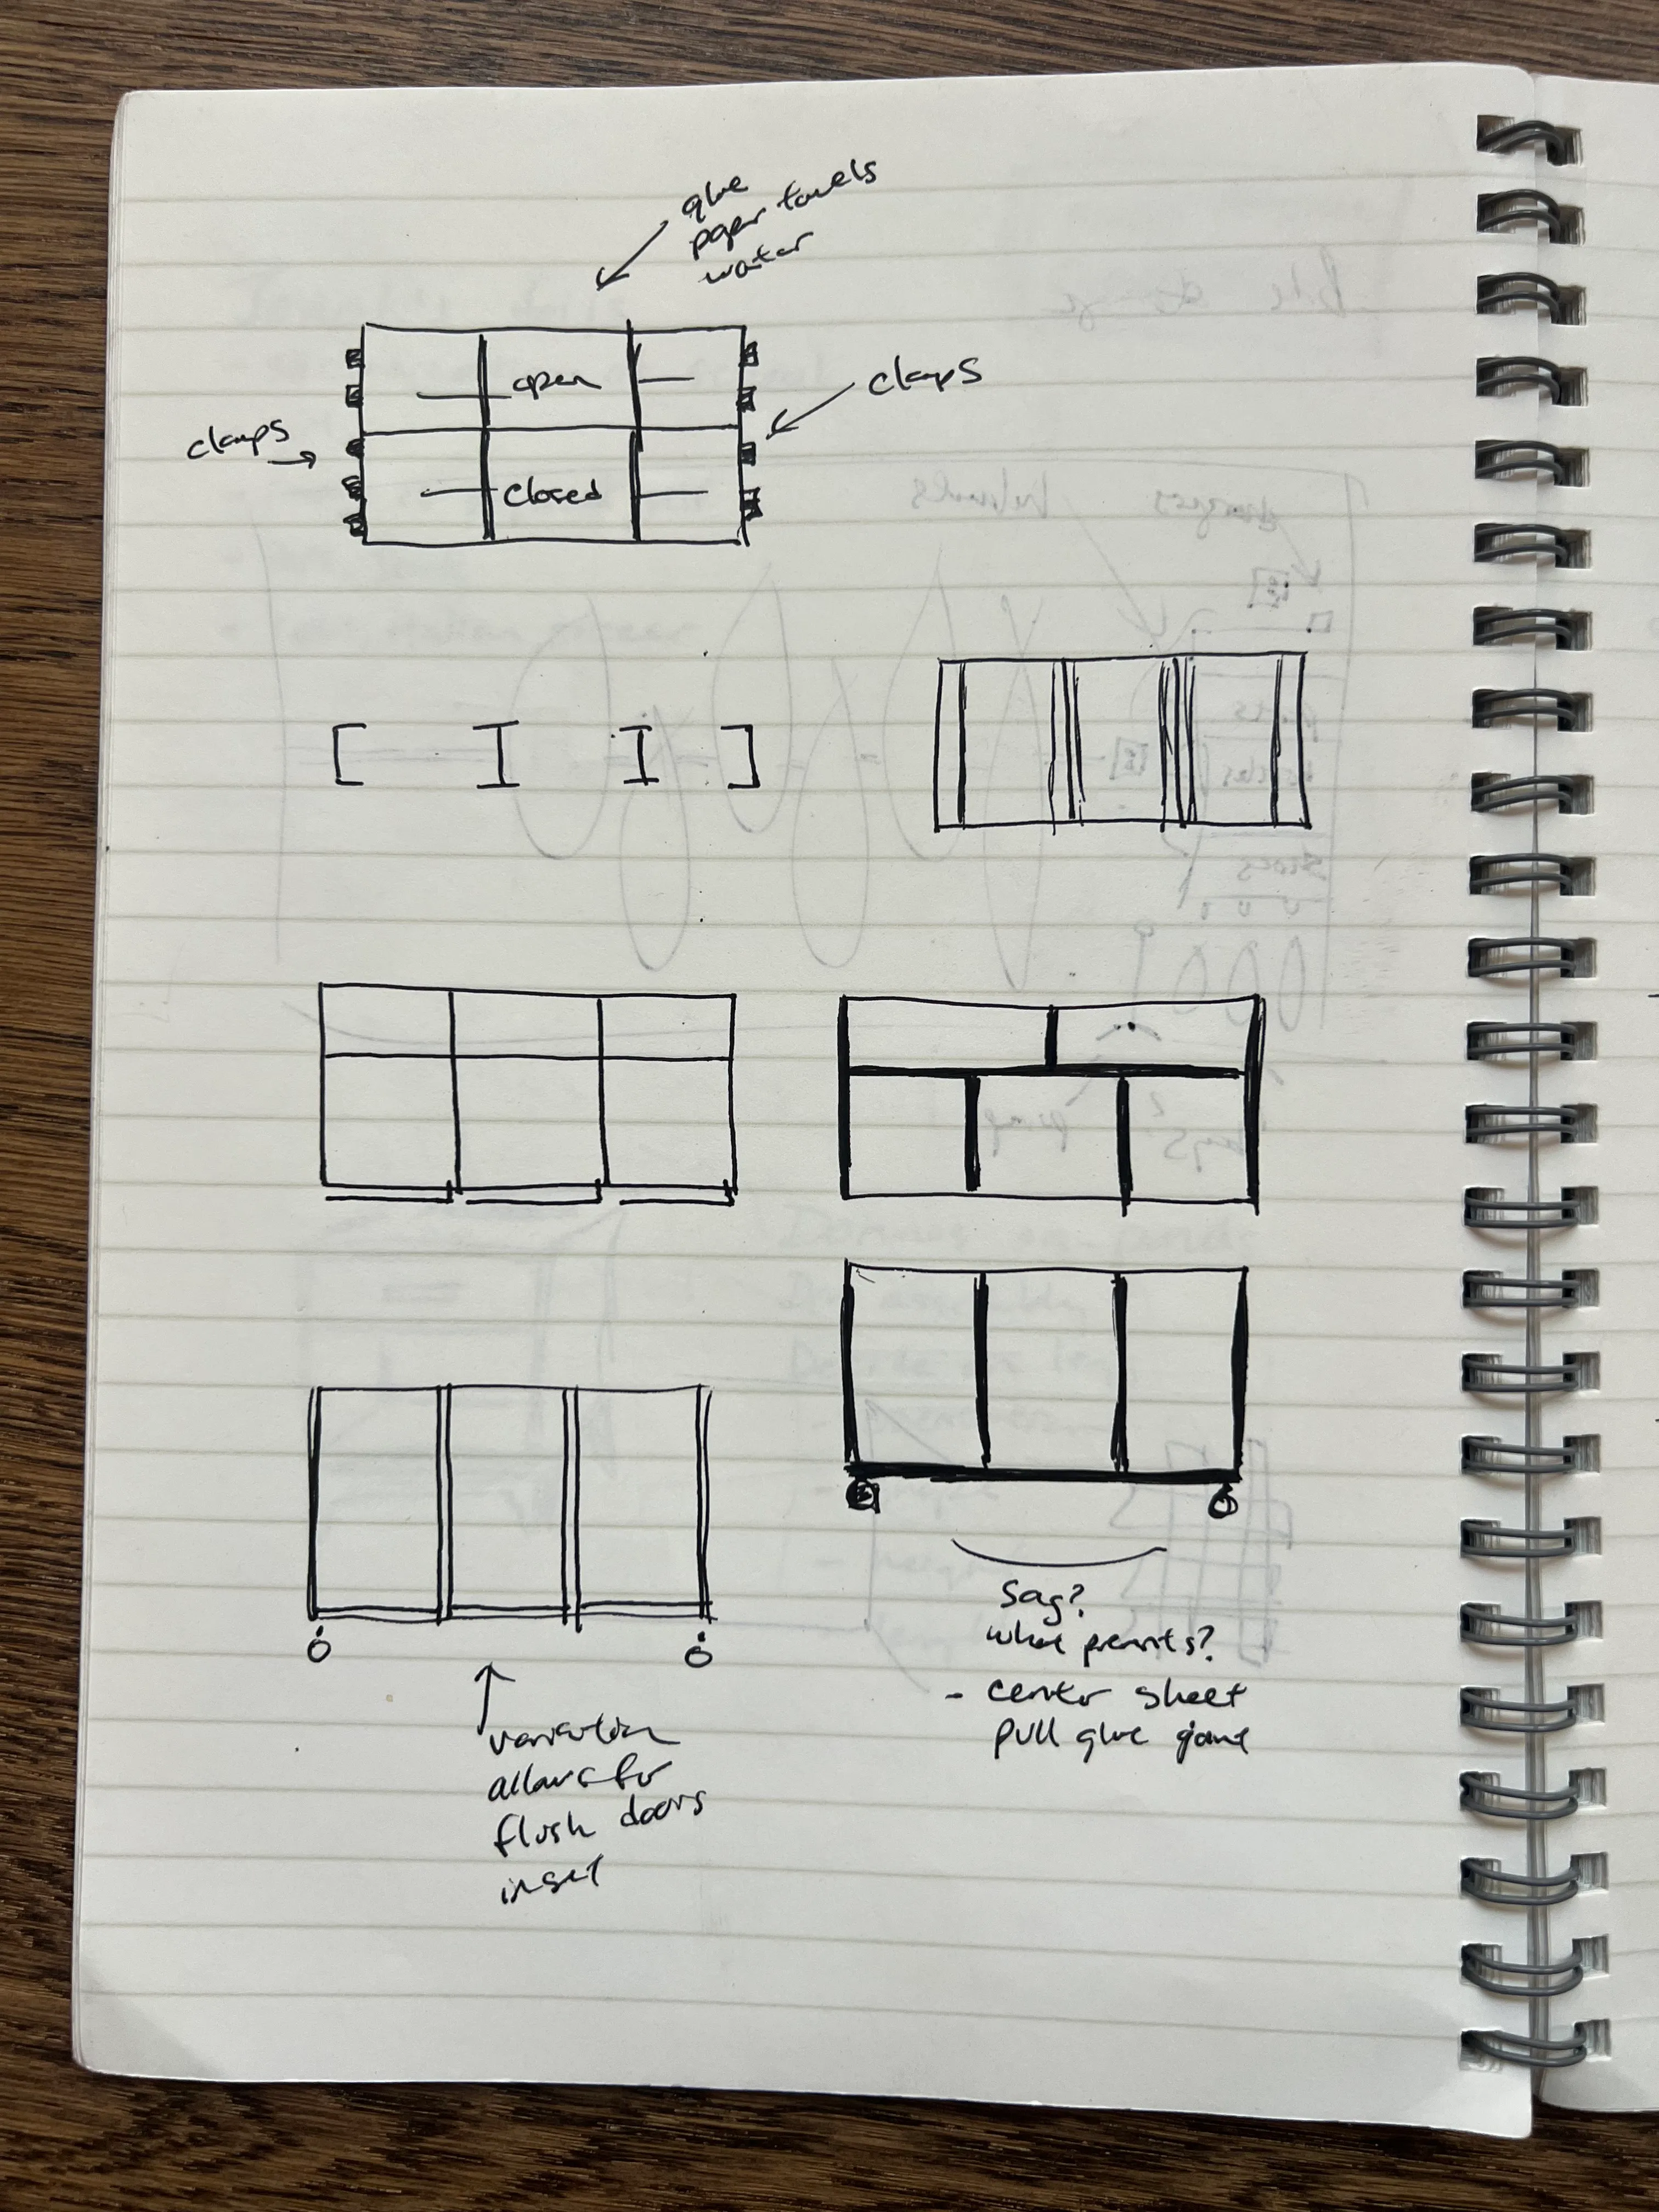 glue
paper towels
water
clamps
open
clamps
closed
Sag?
what prevents?
- center sheet
pull glue game
variation
allows for
flush doors
inset